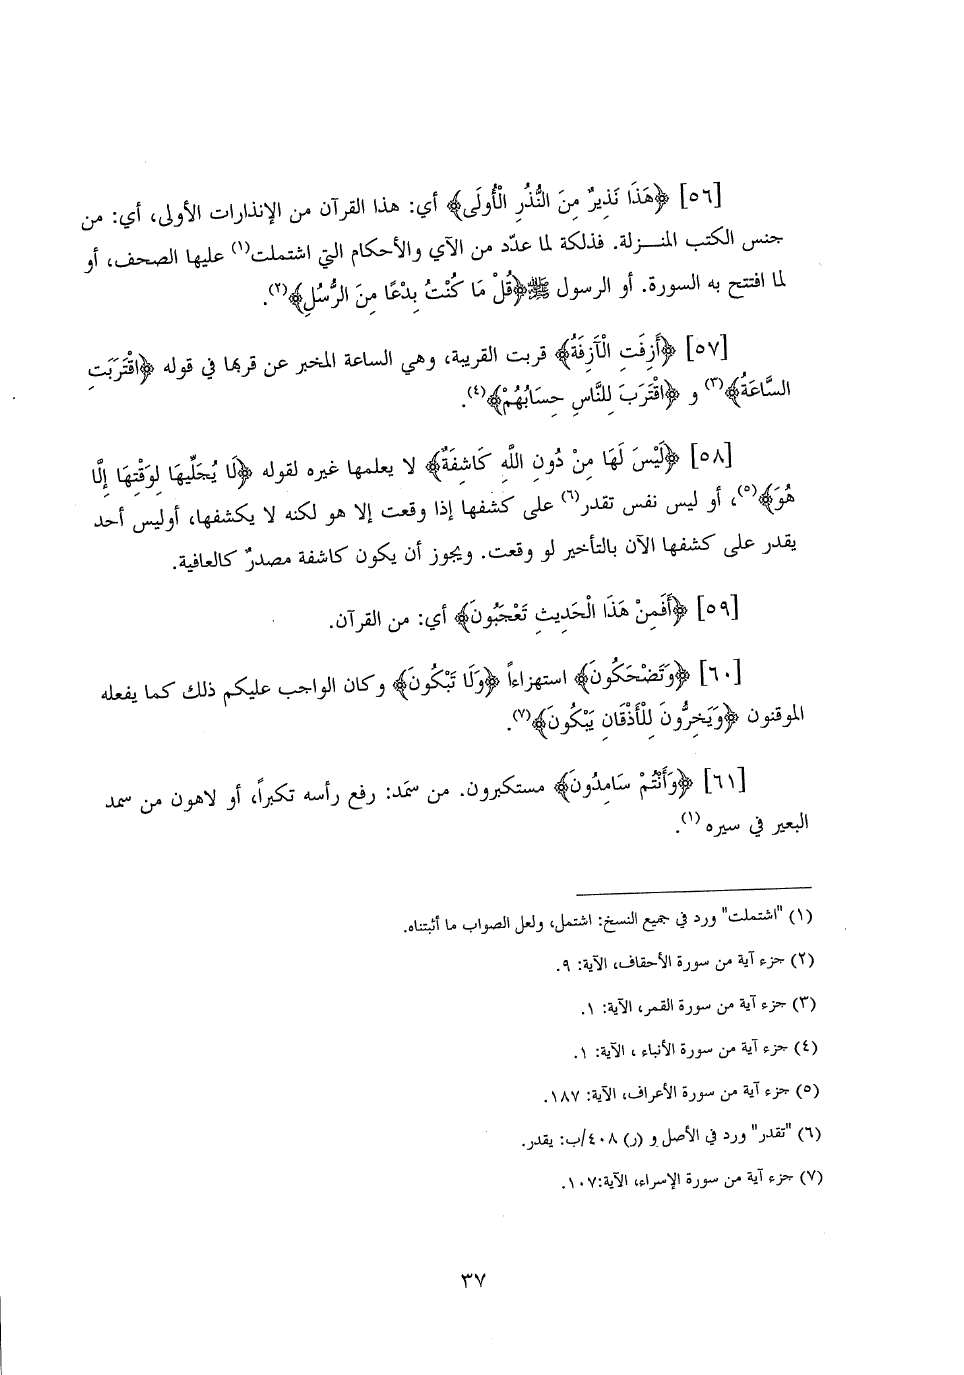 [٥٦] ﴿هَذَا نَذِيرٌ مِنَ النُّذُرِ الْأُولَى﴾ أي: هذا القرآن من الإنذارات الأولى، أي: من
جنس الكتب المنـزلة. فذلكة لما عدّد من الآي والأحكام التي اشتملت(١) عليها الصحف، أو
لما افتتح به السورة. أو الرسول ﷺ ﴿قُلْ مَا كُنْتُ بِدْعًا مِنَ الرُّسُلِ﴾(٢).
[٥٧] ﴿أَزِفَتِ الْآَزِفَةُ﴾ قربت القريبة، وهي الساعة المخبر عن قربها في قوله ﴿اقْتَرَبَتِ
السَّاعَةُ﴾(٣) و ﴿اقْتَرَبَ لِلنَّاسِ حِسَابُهُمْ﴾(٤).
[٥٨] ﴿لَيْسَ لَهَا مِنْ دُونِ اللَّهِ كَاشِفَةٌ﴾ لا يعلمها غيره لقوله ﴿لَا يُجَلِّيهَا لِوَقْتِهَا إِلَّا
هُوَ﴾(٥)، أو ليس نفس تقدر(٦) على كشفها إذا وقعت إلا هو لكنه لا يكشفها، أوليس أحد
يقدر على كشفها الآن بالتأخير لو وقعت. ويجوز أن يكون كاشفة مصدرٌ كالعافية.
[٥٩] ﴿أَفَمِنْ هَذَا الْحَدِيثِ تَعْجَبُونَ﴾ أي: من القرآن.
[٦٠] ﴿وَتَضْحَكُونَ﴾ استهزاءاً ﴿وَلَا تَبْكُونَ﴾ وكان الواجب عليكم ذلك كما يفعله
الموقنون ﴿وَيَخِرُّونَ لِلْأَذْقَانِ يَبْكُونَ﴾(٧).
[٦١] ﴿وَأَنْتُمْ سَامِدُونَ﴾ مستكبرون. من سمَد: رفع رأسه تكبراً، أو لاهون من سمد
البعير في سيره(١).
(١) "اشتملت" ورد في جميع النسخ: اشتمل، ولعل الصواب ما أثبتناه.
(٢) جزء آية من سورة الأحقاف، الآية: ٩.
(٣) جزء آية من سورة القمر، الآية: ١.
(٤) جزء آية من سورة الأنباء ، الآية: ١.
(٥) جزء آية من سورة الأعراف، الآية: ١٨٧.
(٦) "تقدر" ورد في الأصل و (ر) ٤٠٨/ب: يقدر.
(٧) جزء آية من سورة الإسراء، الآية:١٠٧.
٣٧